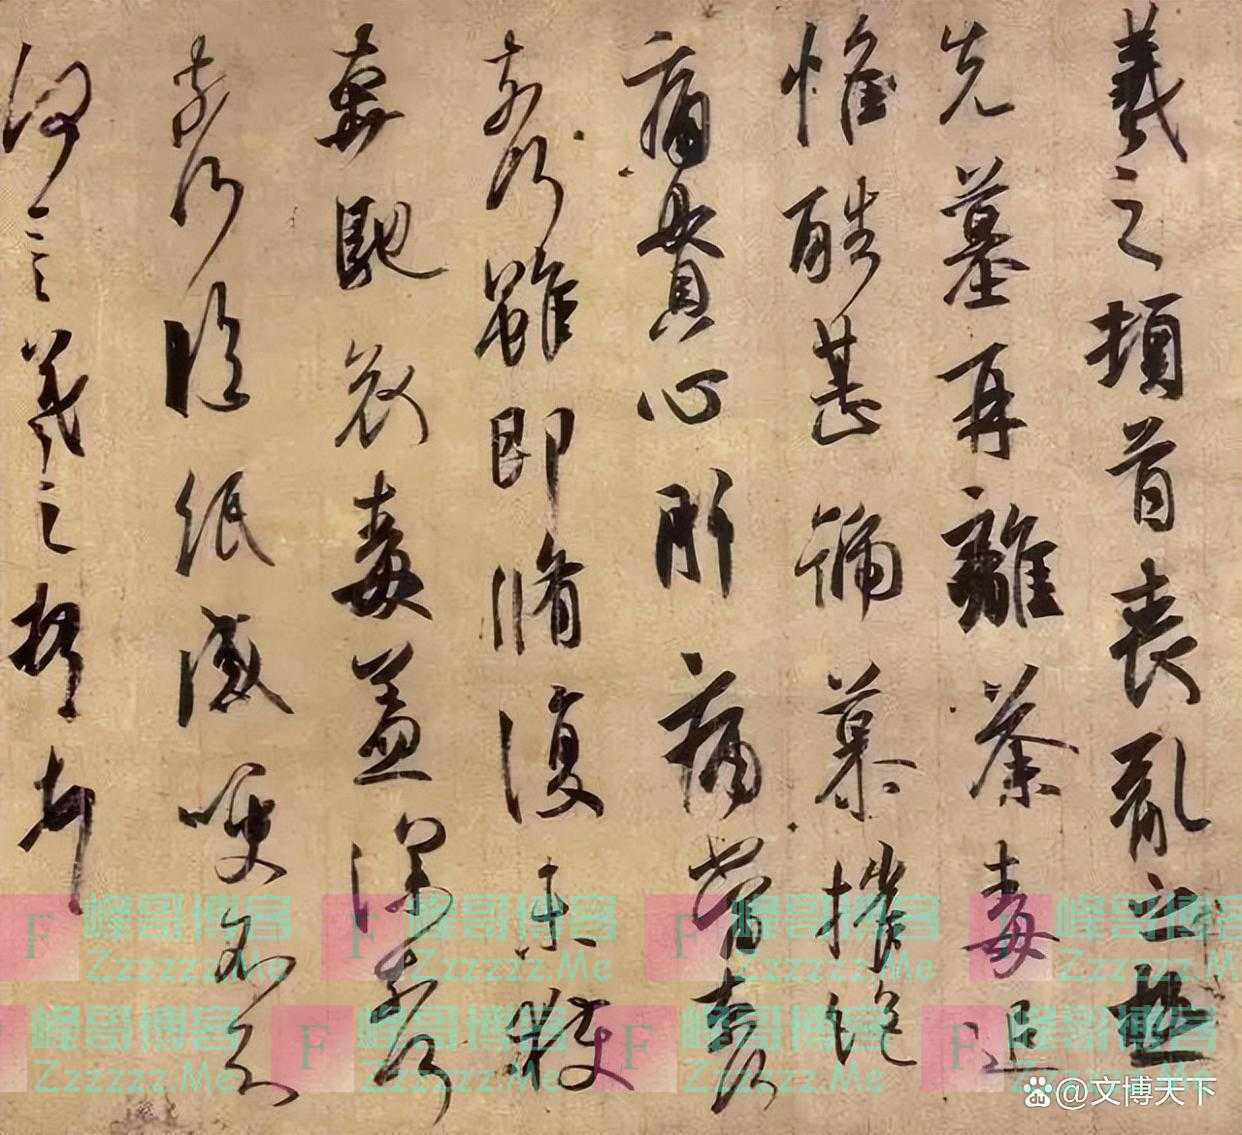 羲之頓首喪亂之極
先墓再離荼毒追
惟酷甚號慕摧絕
痛貫心肝痛當奈何
奈何雖即脩復未獲
奔馳哀毒益深奈何
奈何臨紙感哽不知
何言羲之頓首頓首
F 峰哥博客 Zzzzzz.Me F 峰哥博客 Zzzzzz.Me F 峰哥博客 Zzzzzz.Me F 峰哥博客 Zzzzzz.Me
峰哥博客 Zzzzzz.Me F 峰哥博客 Zzzzzz.Me F 峰哥博客 Zzzzzz.Me F 峰哥博客 Zzzzzz.Me
du @文博天下